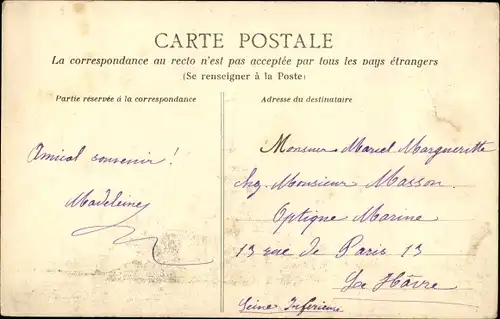 CARTE POSTALE
La correspondance au recto n'est pas acceptée par tous les pays étrangers
(Se renseigner à la Poste)
Partie réservée à la correspondance
Adresse du destinataire
Amical souvenir !
Madeleine
Monsieur Marcel Margueritte
chez Monsieur Masson
Optique Marine
13 rue de Paris 13
La Hâvre
Seine Inférieure